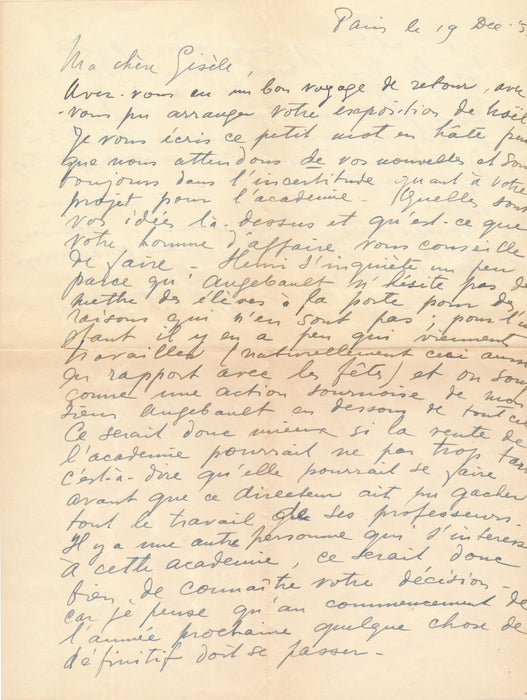 Paris le 19 Dec. 5
Ma chère Gisèle,
Avez-vous eu un bon voyage de retour, avez
-vous pu arranger votre exposition de Noël
Je vous écris ce petit mot en hâte parce
que nous attendons de vos nouvelles et sommes
toujours dans l'incertitude quant à votre
projet pour l'académie - Quelles sont
vos idées là-dessus et qu'est-ce que
votre homme d'affaire vous conseille
de faire - Henri s'inquiète un peu
parce qu'Angebault n'hésite pas de
mettre des élèves à la porte pour des
raisons qui n'en sont pas ; pour l'in
stant il y en a peu qui viennent
travailler (naturellement ceci aussi
en rapport avec les fêtes) et on soup
çonne une action sournoise de mon
sieur Angebault en dessous de tout cela
Ce serait donc mieux si la vente de
l'académie pourrait ne pas trop tarder
c'est-à-dire qu'elle pourrait se faire
avant que ce directeur ait pu gacher
tout le travail de ses professeurs.
Il y a une autre personne qui s'intéresse
à cette académie, ce serait donc
bien de connaître votre décision -
car je pense qu'au commencement de
l'année prochaine quelque chose de
définitif doit se passer -